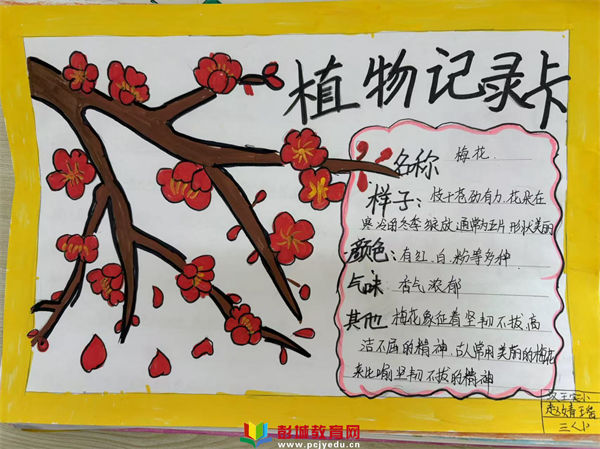 植物记录卡
名称 梅花
样子: 枝干苍劲有力,花朵在
寒冷的冬季绽放,通常为5片,形状美丽
颜色: 有红、白、粉等多种
气味 香气浓郁
其他 梅花象征着坚韧不拔,高
洁不屈的精神,古人常用美丽的梅花
来比喻坚韧不拔的精神
三
彭城教育网
www.pcjyedu.cn